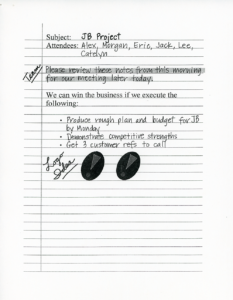 Subject: JB Project
Attendees: Alex, Morgan, Eric, Jack, Lee,
Catelyn
Team
Please review these notes from this morning
for our meeting later today.
We can win the business if we execute the
following:
• Produce rough plan and budget for JB
by Monday
• Demonstrate competitive strengths
• Get 3 customer refs to call
Logo
Ideas